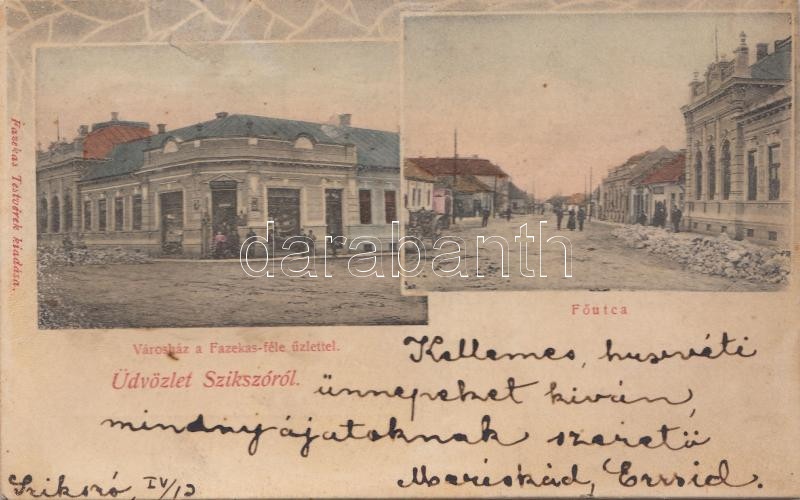 Fazekas Testvérek kiadása.
darabanth
Főutca
Városház a Fazekas-féle űzlettel.
Üdvözlet Szikszóról.
Kellemes, husvéti
ünnepeket kiván,
mindnyájatoknak szerető
Szikszó, IV/13